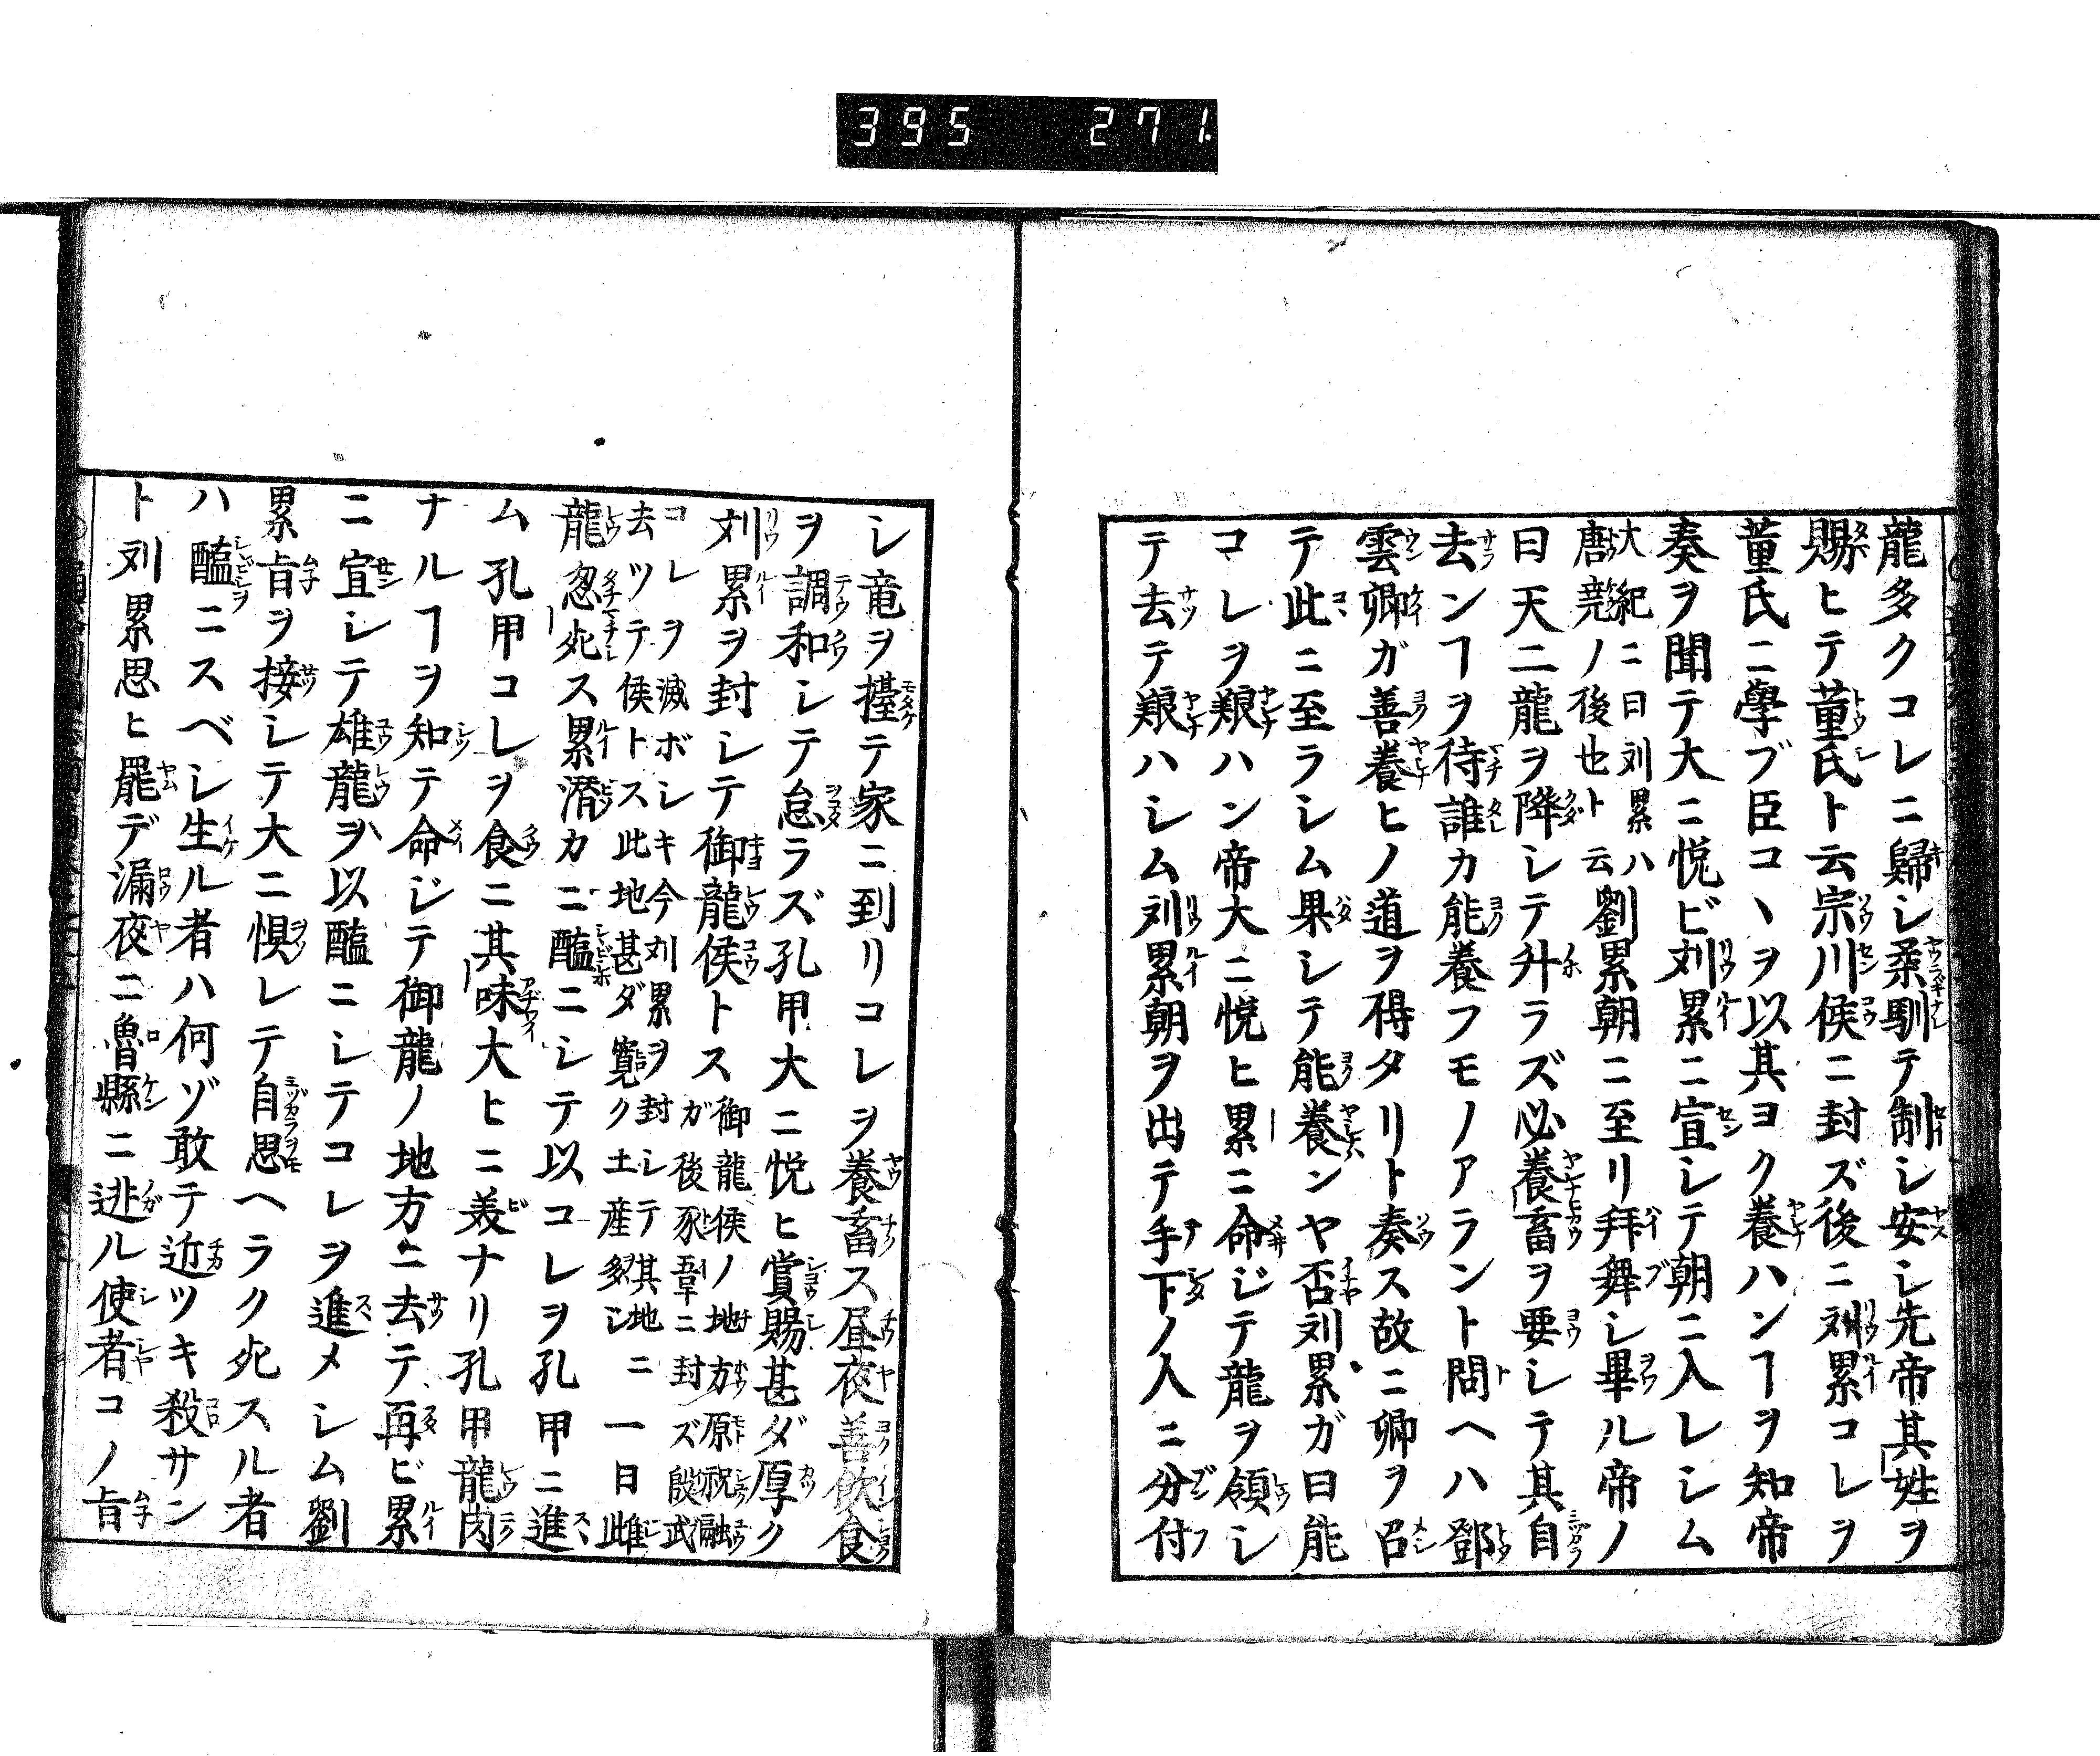 395 271
龍多クコレニ歸シ柔馴テ制シ安シ先帝其姓ヲ
賜ヒテ董氏ト云宗川侯ニ封ズ後ニ刘累コレヲ
董氏ニ學ブ臣コヽヲ以其ヨク養ハンヿヲ知帝
奏ヲ聞テ大ニ悦ビ刘累ニ宣シテ朝ニ入レシム
大紀ニ曰刘累ハ
唐堯ノ後也ト云
劉累朝ニ至リ拜舞シ畢ル帝ノ
曰天二龍ヲ降シテ升ラズ必養畜ヲ要シテ其自
去ンヿヲ待誰カ能養フモノアラント問ヘハ鄧
雲卿ガ善養ヒノ道ヲ得タリト奏ス故ニ卿ヲ召
テ此ニ至ラシム果シテ能養ンヤ否刘累ガ曰能
コレヲ豢ハン帝大ニ悦ヒ累ニ命ジテ龍ヲ領シ
テ去テ豢ハシム刘累朝ヲ出テ手下ノ人ニ分付
シ竜ヲ擡テ家ニ到リコレヲ養畜ス昼夜善飲食
ヲ調和シテ怠ラズ孔甲大ニ悦ヒ賞賜甚ダ厚ク
刘累ヲ封シテ御龍侯トス
御龍侯ノ地方原祝融
ガ後豕韋ニ封ズ殷武
コレヲ滅ボシキ今刘累ヲ封シテ其地ニ
去ツテ侯トス此地甚ダ寛ク土産多シ
一日雌
龍忽死ス累潛カニ醢ニシテ以コレヲ孔甲ニ進
ム孔甲コレヲ食ニ其味大ヒニ美ナリ孔甲龍肉
ナルヿヲ知テ命ジテ御龍ノ地方ニ去テ再ビ累
ニ宣シテ雄龍ヲ以醢ニシテコレヲ進メシム劉
累旨ヲ接シテ大ニ惧レテ自思ヘラク死スル者
ハ醢ニスベシ生ル者ハ何ゾ敢テ近ツキ殺サン
ト刘累思ヒ罷デ漏夜ニ魯縣ニ逃ル使者コノ旨